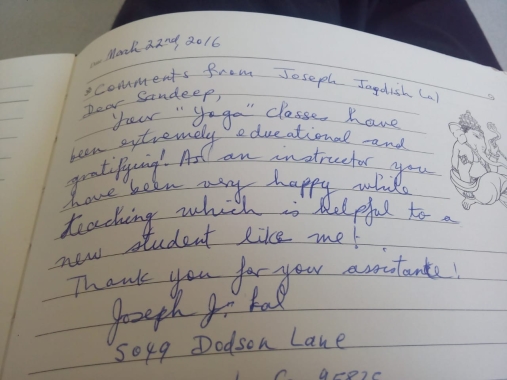 March 22nd, 2016
* Comments from Joseph Jagdish Lal
Dear Sandeep,
Your "Yoga" classes have
been extremely educational and
gratifying! As an instructor you
have been very happy while
teaching which is helpful to a
new student like me!
Thank you for your assistance!
Joseph J. Lal
5049 Dodson Lane